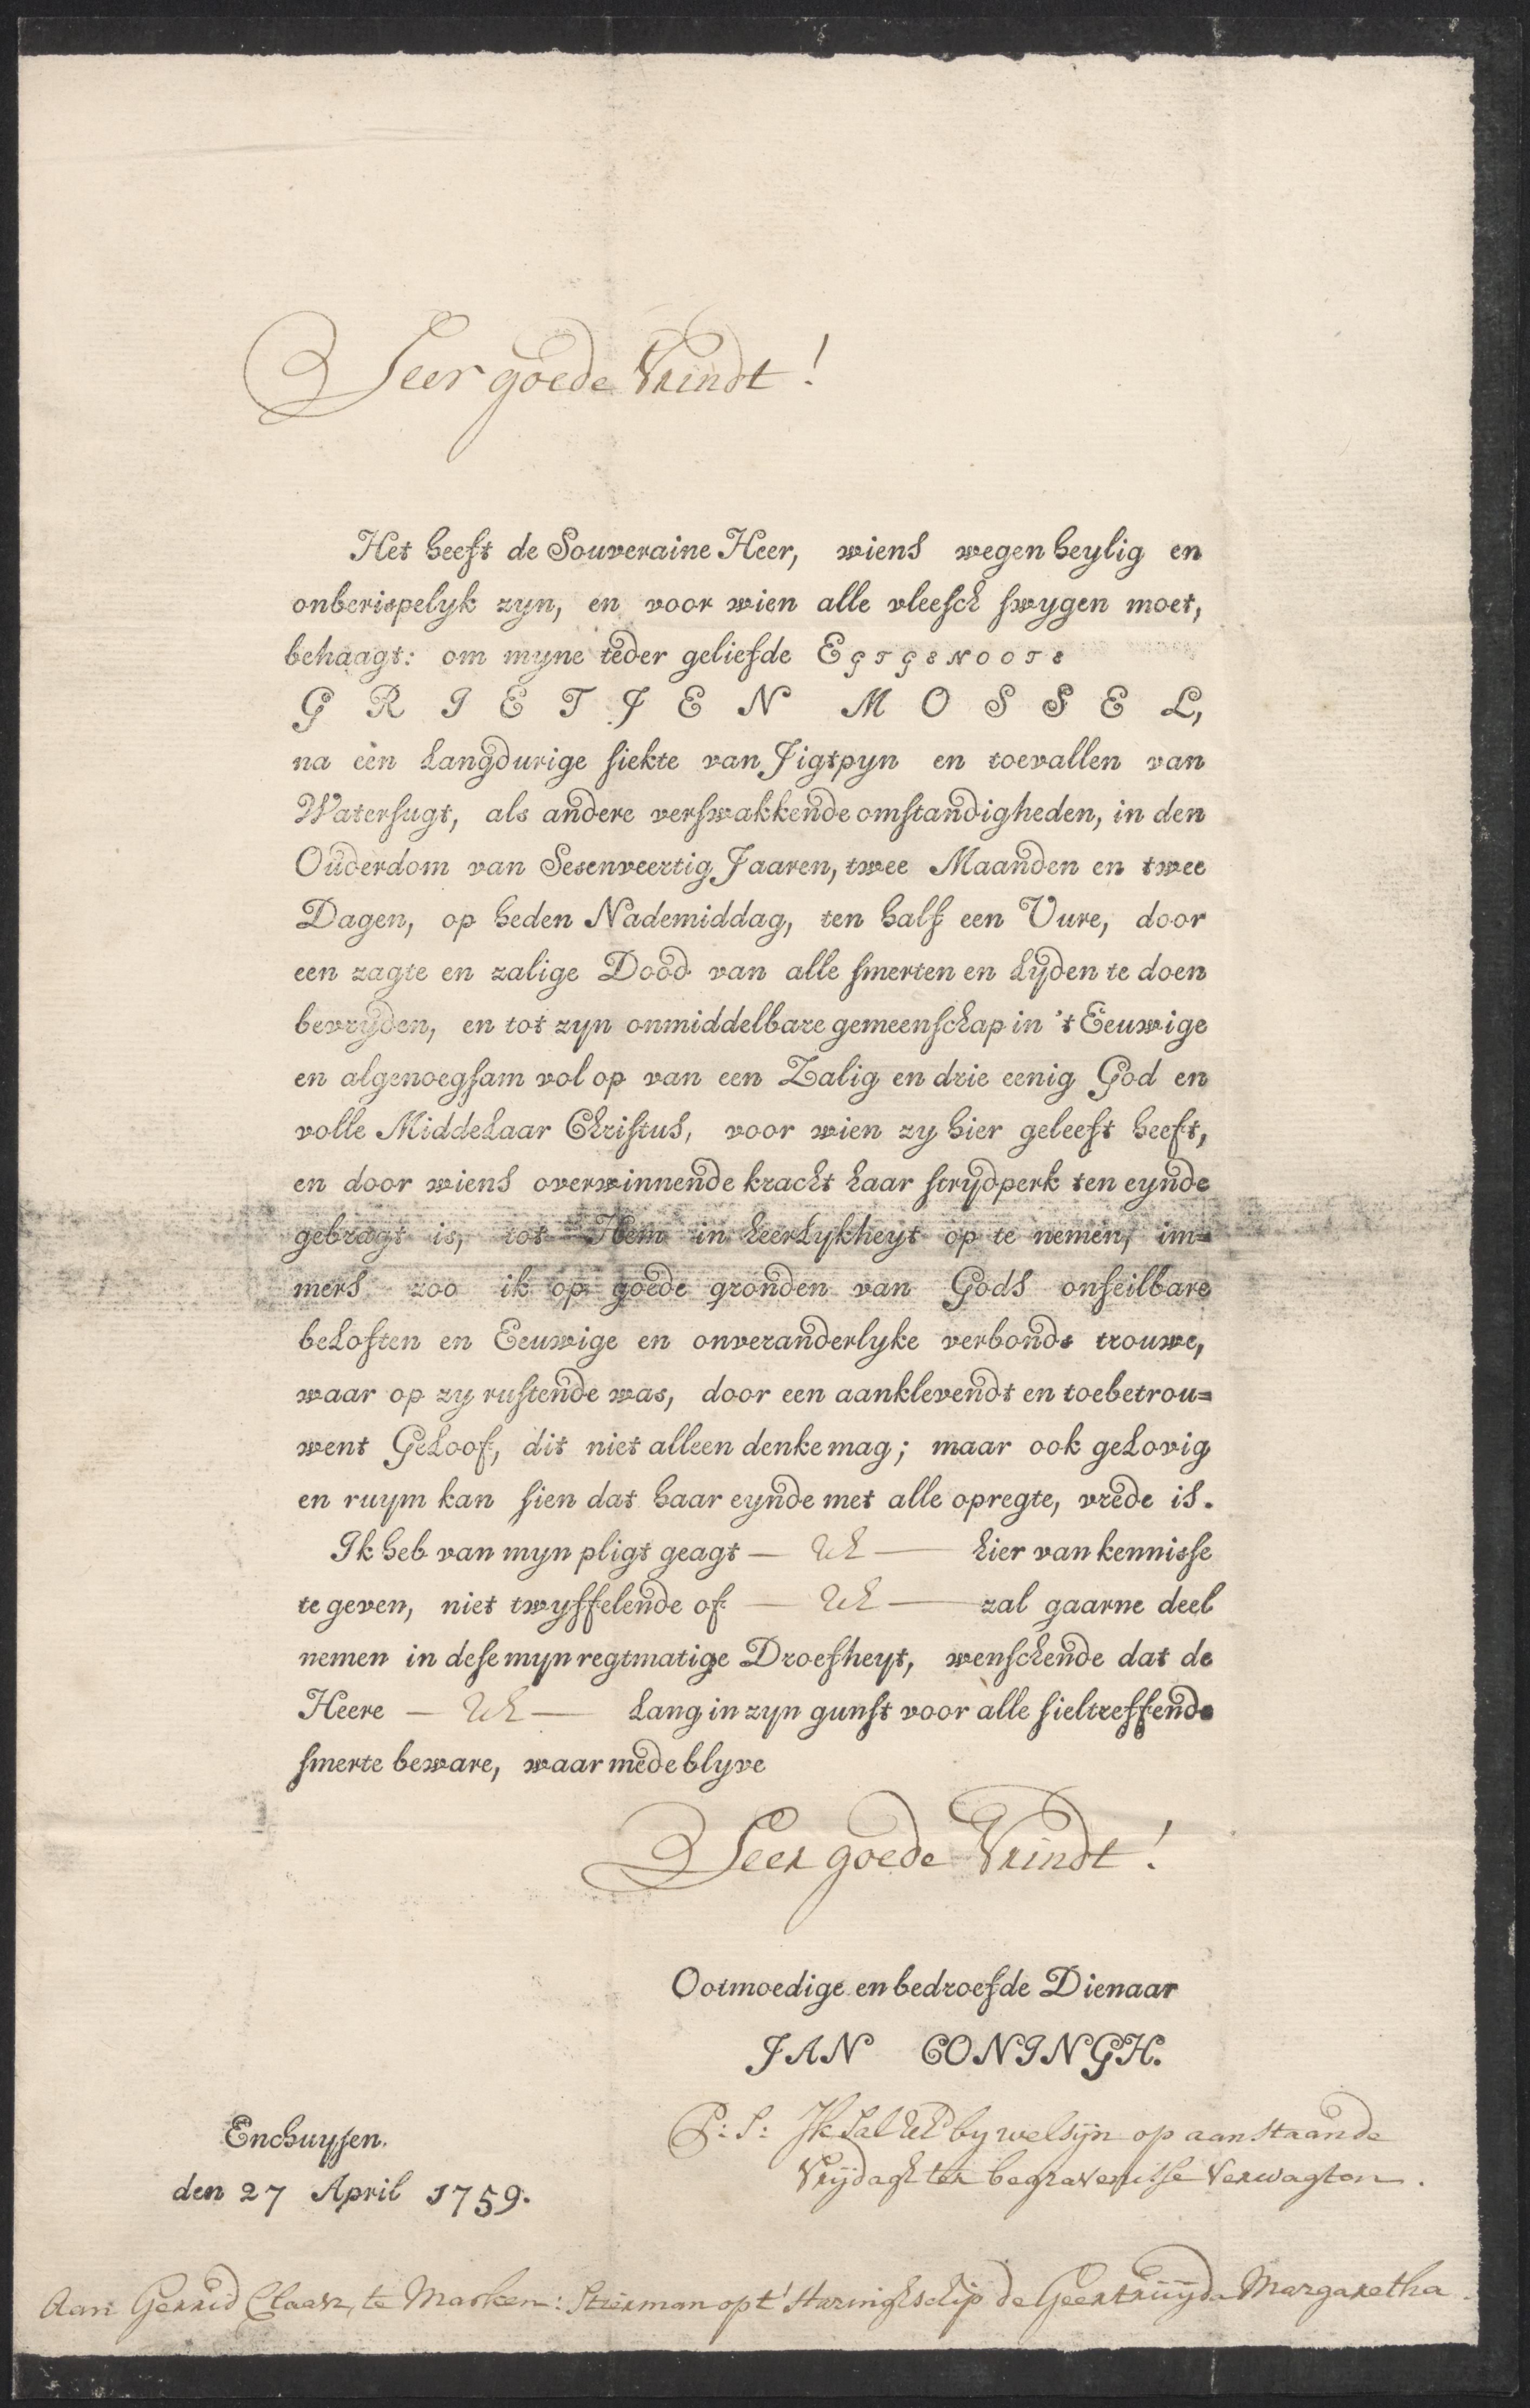 Seer goede Vrindt!
Het heeft de Souveraine Heer, wiens wegen heylig en
onberispelyk zyn, en voor wien alle vleesch swygen moet,
behaagt: om myne teder geliefde EGTGENOOTE
GRIETJEN MOSSEL,
na een langdurige siekte van Jigtpyn en toevallen van
Watersugt, als andere verswakkende omstandigheden, in den
Ouderdom van Sesenveertig Jaaren, twee Maanden en twee
Dagen, op heden Nademiddag, ten half een Uure, door
een zagte en zalige Dood van alle smerten en lyden te doen
bevryden, en tot zyn onmiddelbare gemeenschap in 't Eeuwige
en algenoegsam vol op van een Zalig en drie eenig God en
volle Middelaar Christus, voor wien zy hier geleeft heeft,
en door wiens overwinnende kracht haar strydperk ten eynde
gebragt is, tot Hem in heerlykheyt op te nemen, im=
mers zoo ik op goede gronden van Gods onfeilbare
beloften en Eeuwige en onveranderlyke verbonds trouwe,
waar op zy rustende was, door een aanklevendt en toebetrou=
went Geloof, dit niet alleen denke mag; maar ook gelovig
en ruym kan sien dat haar eynde met alle opregte, vrede is.
Ik heb van myn pligt geagt — UE — hier van kennisse
te geven, niet twyffelende of — UE — zal gaarne deel
nemen in dese myn regtmatige Droefheyt, wenschende dat de
Heere — UE — lang in zyn gunst voor alle sieltreffende
smerte beware, waar mede blyve
Seer goede Vrindt!
Ootmoedige en bedroefde Dienaar
JAN CONINGH.
Enchuysen.
den 27 April 1759.
P: S: Ik Sal UE by welsyn op aanstaande
Vrydagh ter begravenisse Verwagten.
Aan Gerrid Claasz, te Marken: Stierman opt' Haringhschip de Geertruyda Margaretha.